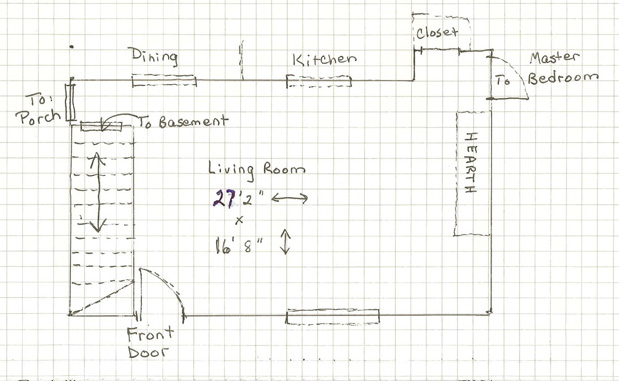 Closet
Dining
Kitchen
Master
To Bedroom
To
Porch
To Basement
HEARTH
Living Room
27'2"
x
16' 8"
Front
Door